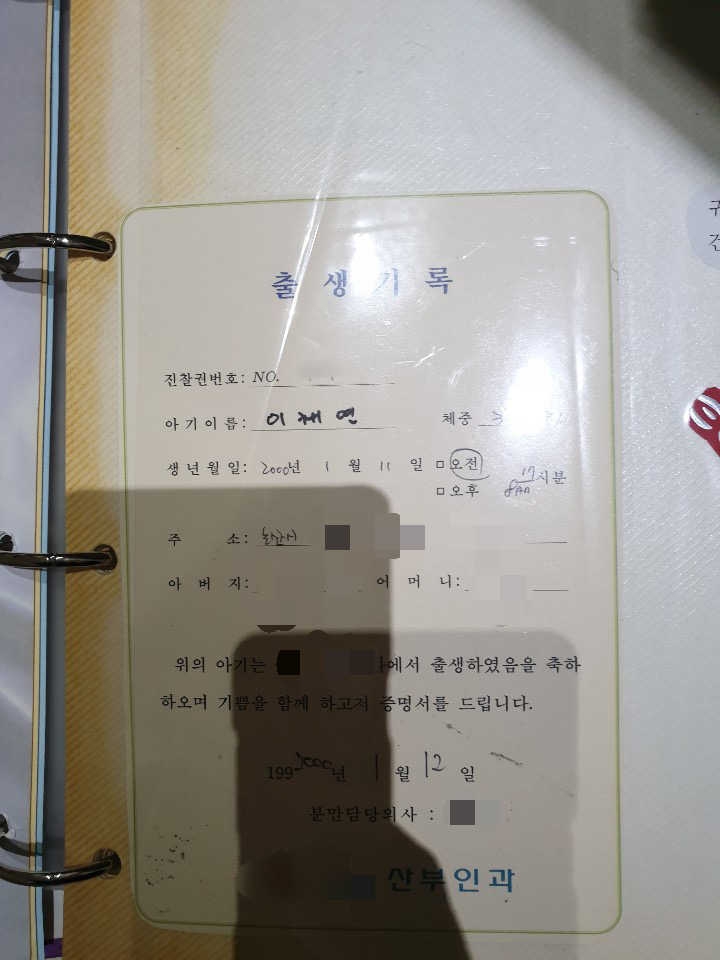 출생기록
진찰권번호: NO.
아기이름: 이채연 체중
생년월일: 2000년 1월 11일 □오전
□오후 시분
주 소:
아버지: 어머니:
위의 아기는 에서 출생하였음을 축하
하오며 기쁨을 함께 하고저 증명서를 드립니다.
199 2000년 1월 12일
분만담당의사 :
산부인과